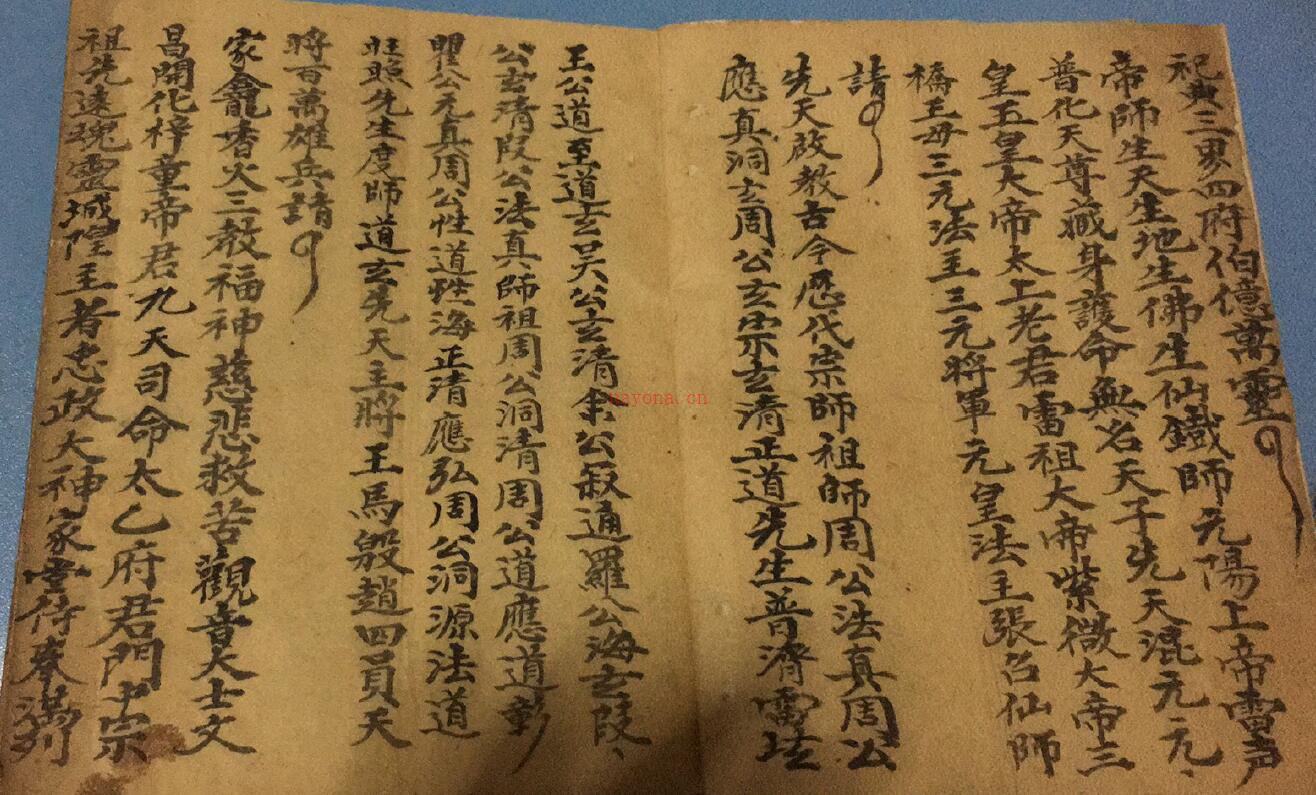 祀典三界四府伯億萬靈
帝師生天生地生佛生仙鐵師元陽上帝雷声
普化天尊藏身護命無名天子先天混元元、
皇玉皇大帝太上老君雷祖大帝紫微大帝三
橋王母三元法王三元将軍元皇法主張召仙師
請
先天啟教古今歷代宗師祖師周公法真周公
應真洞玄周公玄宗玄清正道先生普濟雷坛
王公道至道玄吴公玄清余公叔通羅公海玄段、
公玄清段公法真師祖周公洞清周公道應道彰
瞿公元真周公性道性海正清應弘周公洞源法道
旺照先生度師道玄先天主將王馬殷趙四員天
將百萬雄兵請
家龕香火三教福神慈悲救苦觀音大士文
昌開化梓童帝君九天司命太乙府君門中宗
祖先遠魂靈城隍王者忠政大神家堂待奉满列
uayona.cn